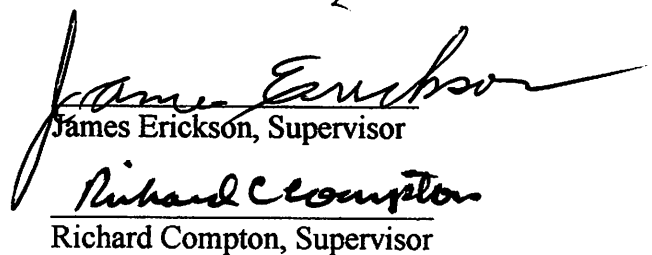 James Erickson
James Erickson, Supervisor
Richard C Compton
Richard Compton, Supervisor